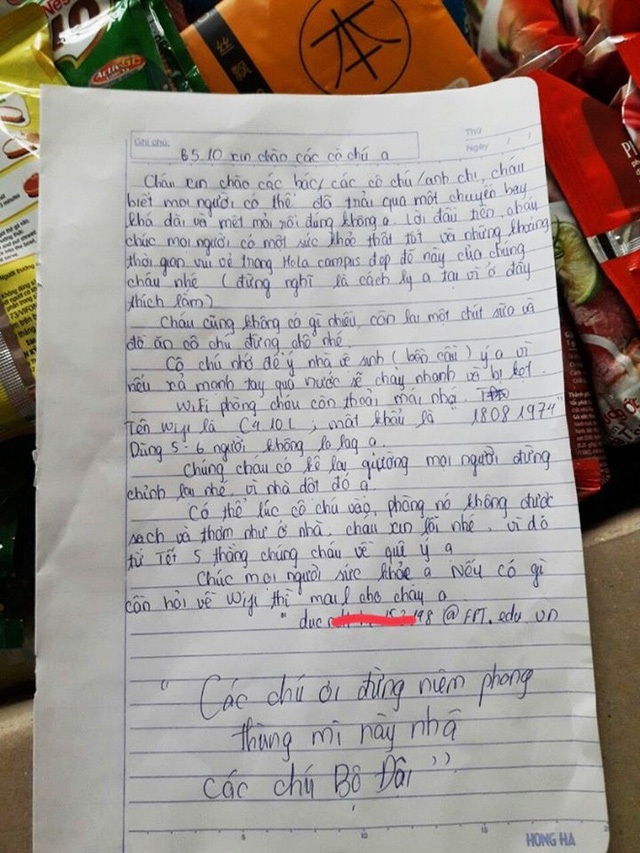 丝
飘
本
Activ-Go
Ghi chú:
Thứ
Ngày / /
B510 xin chào các cô chú ạ
Cháu xin chào các bác/ các cô chú/anh chị, cháu
biết mọi người có thể đã trải qua một chuyến bay
khá dài và mệt mỏi rồi đúng không ạ. Lời đầu tiên, cháu
chúc mọi người có một sức khỏe thật tốt và những khoảng
thời gian vui vẻ trong Hola campus đẹp đẽ này của chúng
cháu nhé (đừng nghĩ là cách ly ạ tại vì ở đây
thích lắm)
Cháu cũng không có gì nhiều, còn lại một chút sữa và
đồ ăn cô chú đừng chê nhé.
Cô chú nhớ để ý nhà vệ sinh (bồn cầu) ý ạ vì
nếu xả mạnh tay quá nước sẽ chảy nhanh và bị kẹt.
WiFi phòng cháu còn thoải mái nhá.
Tên wifi là C410L; mật khẩu là "18081974"
Dùng 5-6 người không lo lag ạ.
Chúng cháu có kê lại giường mọi người đừng
chỉnh lại nhé, vì nhà dột đó ạ
Có thể lúc cô chú vào, phòng nó không được
sạch và thơm như ở nhà, cháu xin lỗi nhé, vì đó
từ Tết 5 tháng chúng cháu về quê ý ạ
Chúc mọi người sức khỏe ạ Nếu có gì
cần hỏi về wifi thì mail cho cháu ạ
"duc 198@FPT.edu.vn
"Các chú ơi đừng niêm phong
thùng mì này nhá
các chú Bộ Đội"
HONG HA
5
10
15